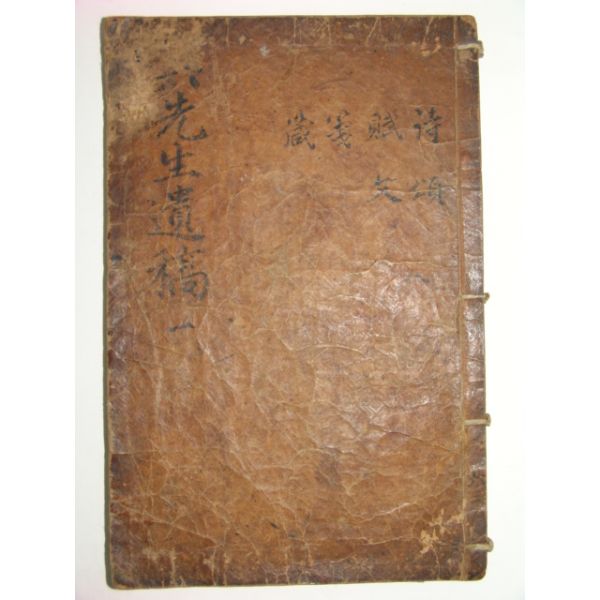 六先生遺稿 一
詩頌
賦文
箋
箴